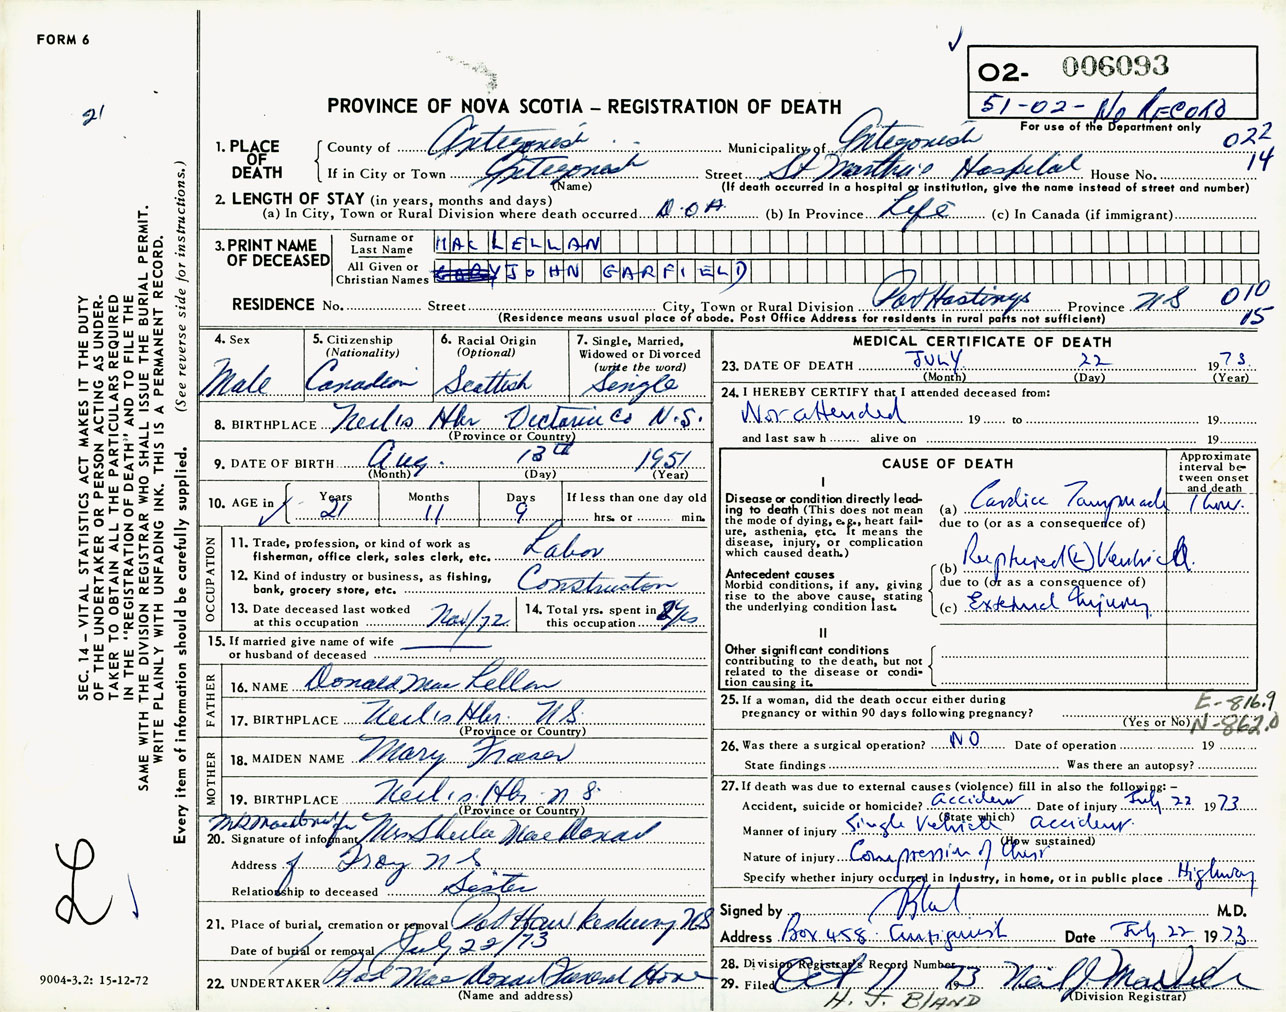 FORM 6
02- 006093
51-02- No RECORD
For use of the Department only
21
PROVINCE OF NOVA SCOTIA – REGISTRATION OF DEATH
1. PLACE OF DEATH
County of Antigonish Municipality of Antigonish 022
If in City or Town Antigonish Street St Martha's Hospital House No. 14
(Name) (If death occurred in a hospital or institution, give the name instead of street and number)
2. LENGTH OF STAY (in years, months and days)
(a) In City, Town or Rural Division where death occurred D.O.A. (b) In Province Life (c) In Canada (if immigrant)
3. PRINT NAME OF DECEASED
Surname or Last Name MAC LELLAN
All Given or Christian Names GARY JOHN GARFIELD
RESIDENCE No. Street City, Town or Rural Division Port Hastings Province NS 010
15
(Residence means usual place of abode. Post Office Address for residents in rural parts not sufficient)
4. Sex Male
5. Citizenship (Nationality) Canadian
6. Racial Origin (Optional) Scottish
7. Single, Married, Widowed or Divorced (write the word) Single
8. BIRTHPLACE Neil's Hbr Victoria Co N.S.
(Province or Country)
9. DATE OF BIRTH Aug. 13th 1951
(Month) (Day) (Year)
10. AGE in Years 21 Months 11 Days 9 If less than one day old hrs. or min.
OCCUPATION
11. Trade, profession, or kind of work as fisherman, office clerk, sales clerk, etc. Labor
12. Kind of industry or business, as fishing, bank, grocery store, etc. Construction
13. Date deceased last worked at this occupation Nov/72
14. Total yrs. spent in this occupation yrs
15. If married give name of wife or husband of deceased
FATHER
16. NAME Donald MacLellan
17. BIRTHPLACE Neil's Hbr. N.S.
(Province or Country)
MOTHER
18. MAIDEN NAME Mary Fraser
19. BIRTHPLACE Neil's Hbr. N.S.
(Province or Country)
20. Signature of informant Mrs Sheila MacDonald
Address Troy N S
Relationship to deceased Sister
21. Place of burial, cremation or removal Port Hawkesbury NS
Date of burial or removal July 22/73
22. UNDERTAKER MacDonald Funeral Home
(Name and address)
MEDICAL CERTIFICATE OF DEATH
23. DATE OF DEATH JULY 22 1973.
(Month) (Day) (Year)
24. I HEREBY CERTIFY that I attended deceased from:
Not attended 19 to 19
and last saw h alive on 19
CAUSE OF DEATH
Approximate interval between onset and death
I
Disease or condition directly leading to death (This does not mean the mode of dying, e.g., heart failure, asthenia, etc. It means the disease, injury, or complication which caused death.)
(a) Cardiac Tamponade 1 hour.
due to (or as a consequence of)
Antecedent causes
Morbid conditions, if any, giving rise to the above cause, stating the underlying condition last.
(b) Ruptured (L) Ventricle
due to (or as a consequence of)
(c) External Injury
II
Other significant conditions contributing to the death, but not related to the disease or condition causing it.
25. If a woman, did the death occur either during pregnancy or within 90 days following pregnancy?
(Yes or No)
E-816.9
N-862.0
26. Was there a surgical operation? NO Date of operation 19
State findings Was there an autopsy?
27. If death was due to external causes (violence) fill in also the following: –
Accident, suicide or homicide? accident Date of injury July 22 1973
(State which)
Manner of injury Single Vehicle accident.
(How sustained)
Nature of injury Compression of Chest
Specify whether injury occurred in industry, in home, or in public place Highway
Signed by Bland M.D.
Address Box 458 Antigonish Date July 22 1973
28. Division Registrar's Record Number
29. Filed Oct 11 1973
(Division Registrar)
H. J. BLAND
SEC. 14 – VITAL STATISTICS ACT MAKES IT THE DUTY
OF THE UNDERTAKER OR PERSON ACTING AS UNDER-
TAKER TO OBTAIN ALL THE PARTICULARS REQUIRED
IN THE "REGISTRATION OF DEATH" AND TO FILE THE
SAME WITH THE DIVISION REGISTRAR WHO SHALL ISSUE THE BURIAL PERMIT.
WRITE PLAINLY WITH UNFADING INK. THIS IS A PERMANENT RECORD.
Every item of information should be carefully supplied. (See reverse side for instructions.)
26
9004-3.2: 15-12-72